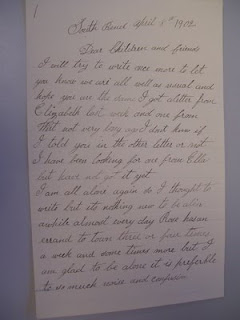 1
South Bend April 8th 1902
Dear Children and friends
I will try to write once more to let
you know we are all well as usual and
hope you are the same I got a letter from
Elizabeth last week and one from
Matt not very long ago I dont know if
I told you in the other letter or not
I have been looking for one from Ella
but have not got it yet
I am all alone again so I thought to
write but its nothing new to be alone
awhile almost every day Rose has an
errand to town three or four times
a week and some times more but I
am glad to be alone it is preferable
to so much noise and confusion